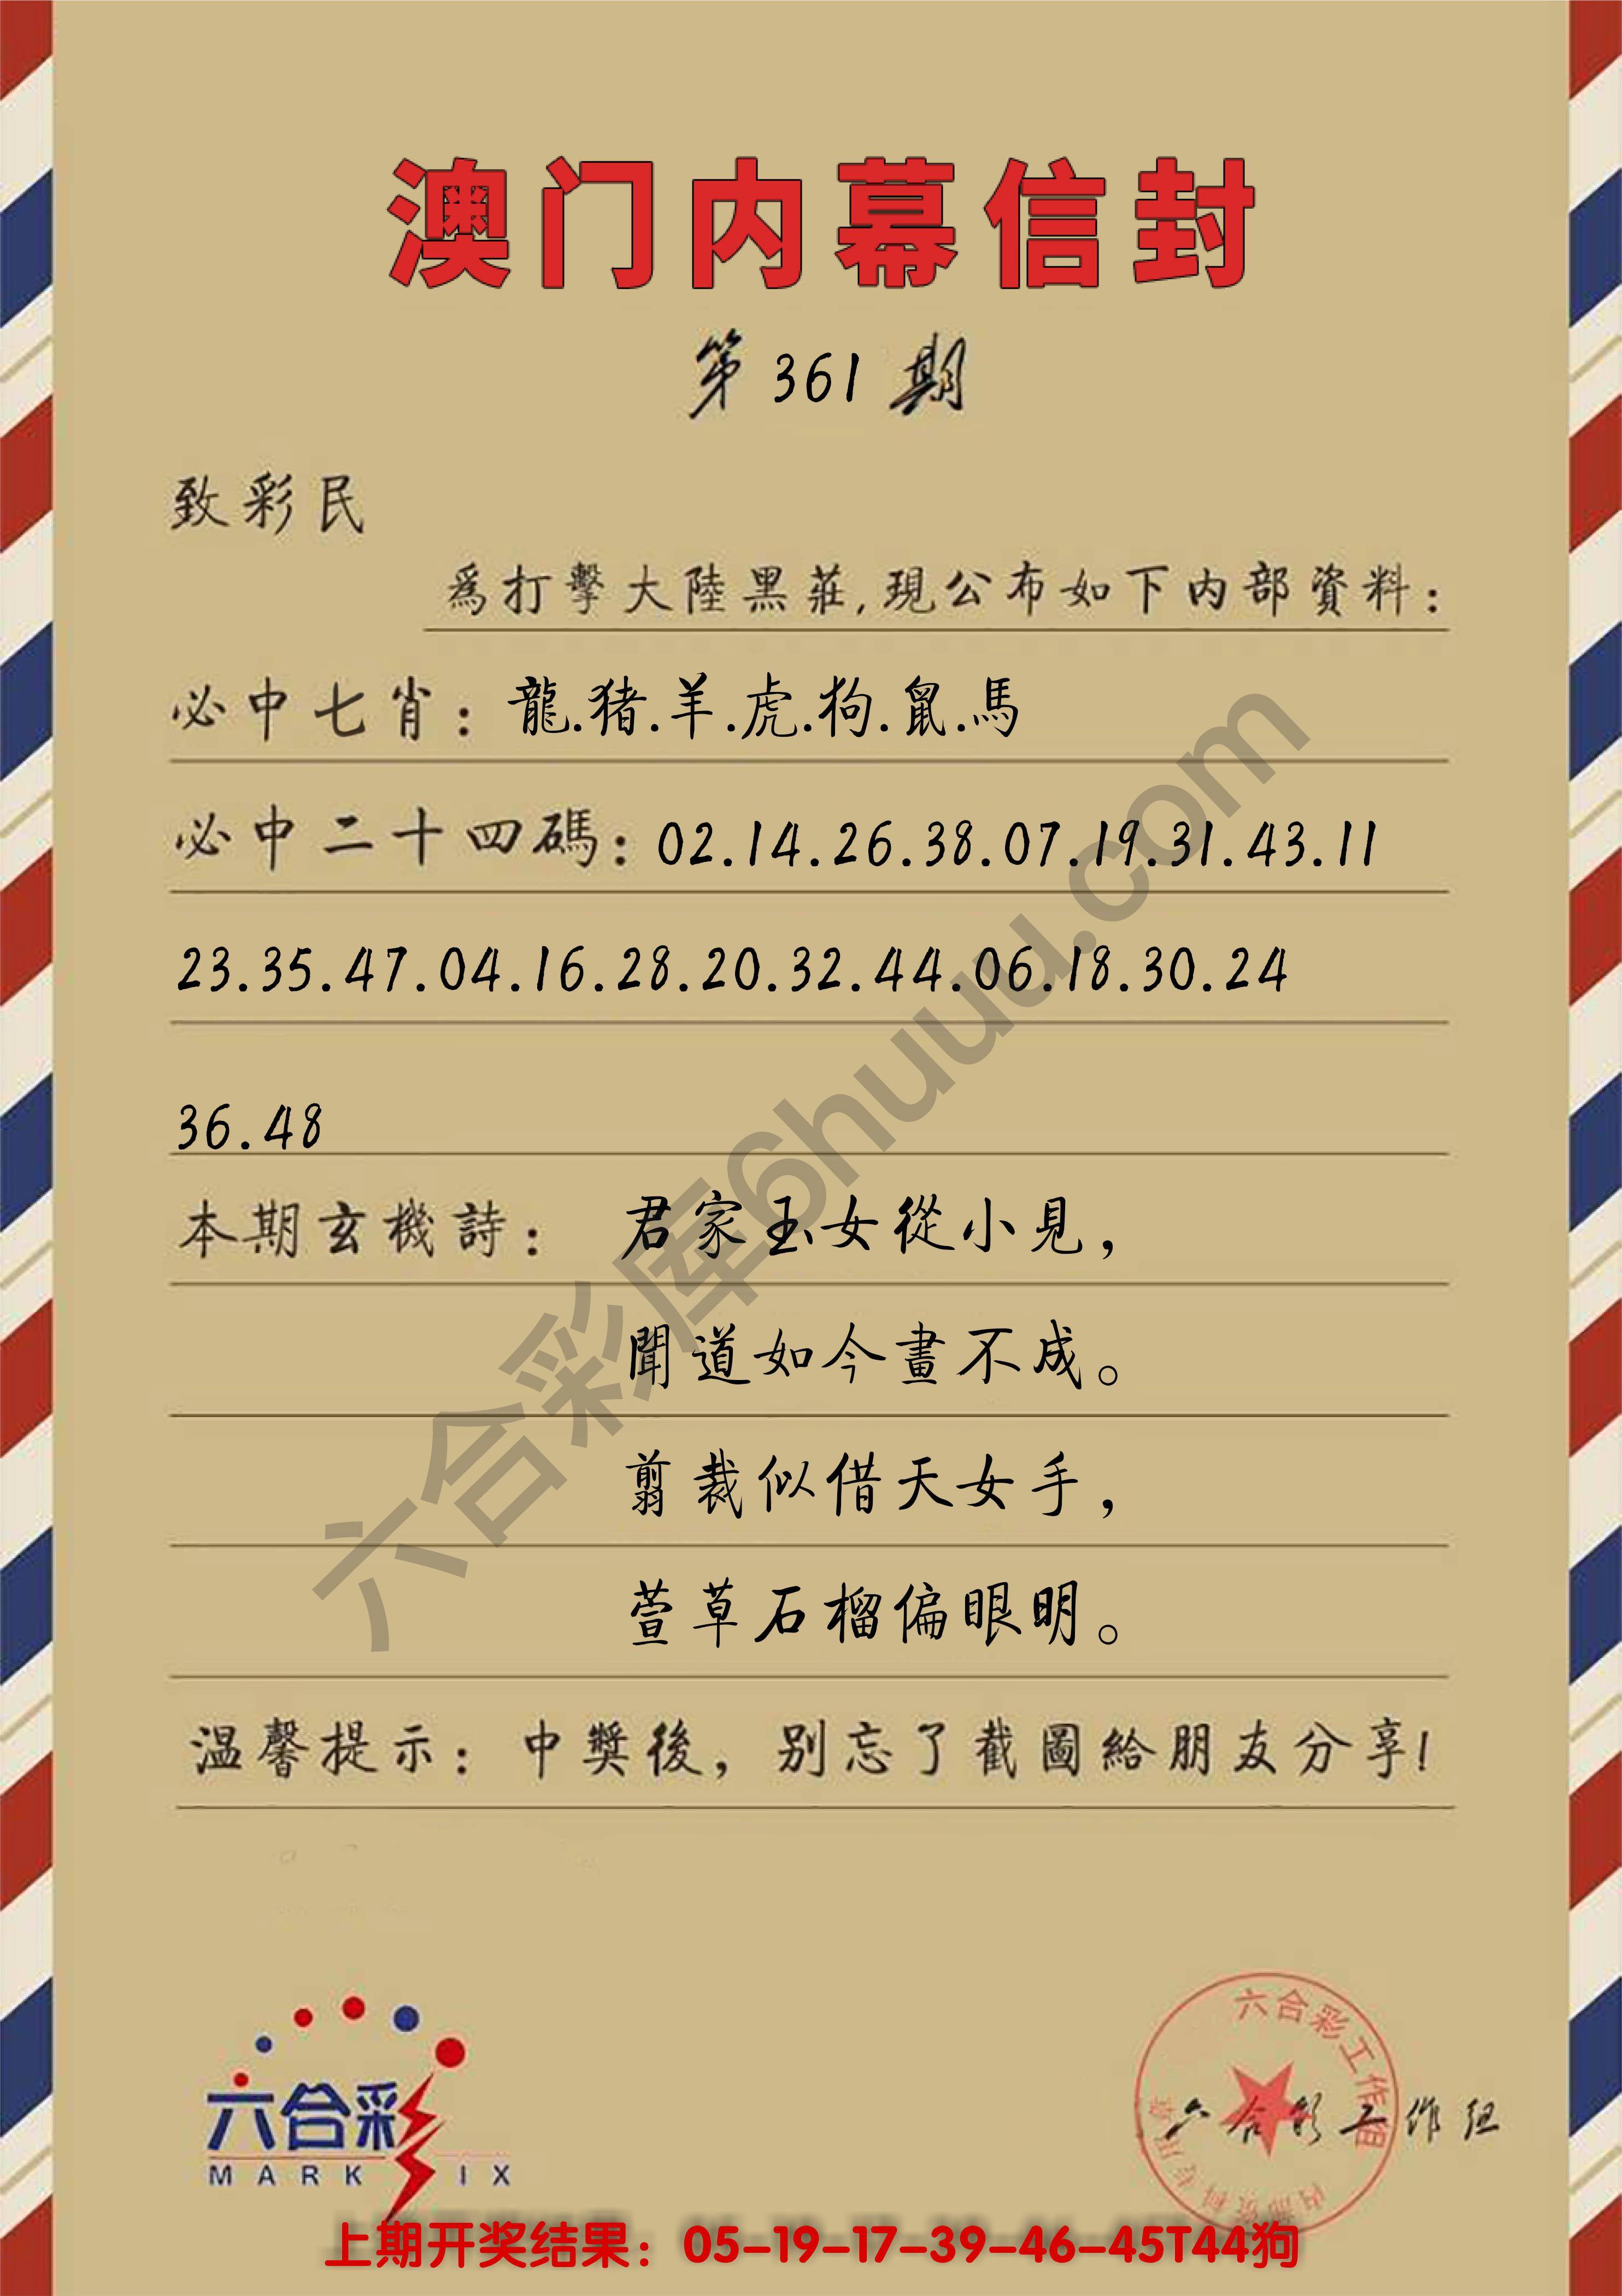 澳门内幕信封
第361期
致彩民
爲打擊大陸黑莊,現公布如下内部資料:
必中七肖:龍.猪.羊.虎.狗.鼠.馬
必中二十四碼:02.14.26.38.07.19.31.43.11
23.35.47.04.16.28.20.32.44.06.18.30.24
36.48
本期玄機詩: 君家玉女從小見,
聞道如今畫不成。
剪裁似借天女手,
萱草石榴偏眼明。
温馨提示:中獎後,别忘了截圖給朋友分享!
六合彩库6huuu.com
六合彩
MARK IX
六合彩工作组
六合彩工作组
上期开奖结果:05-19-17-39-46-45T44狗